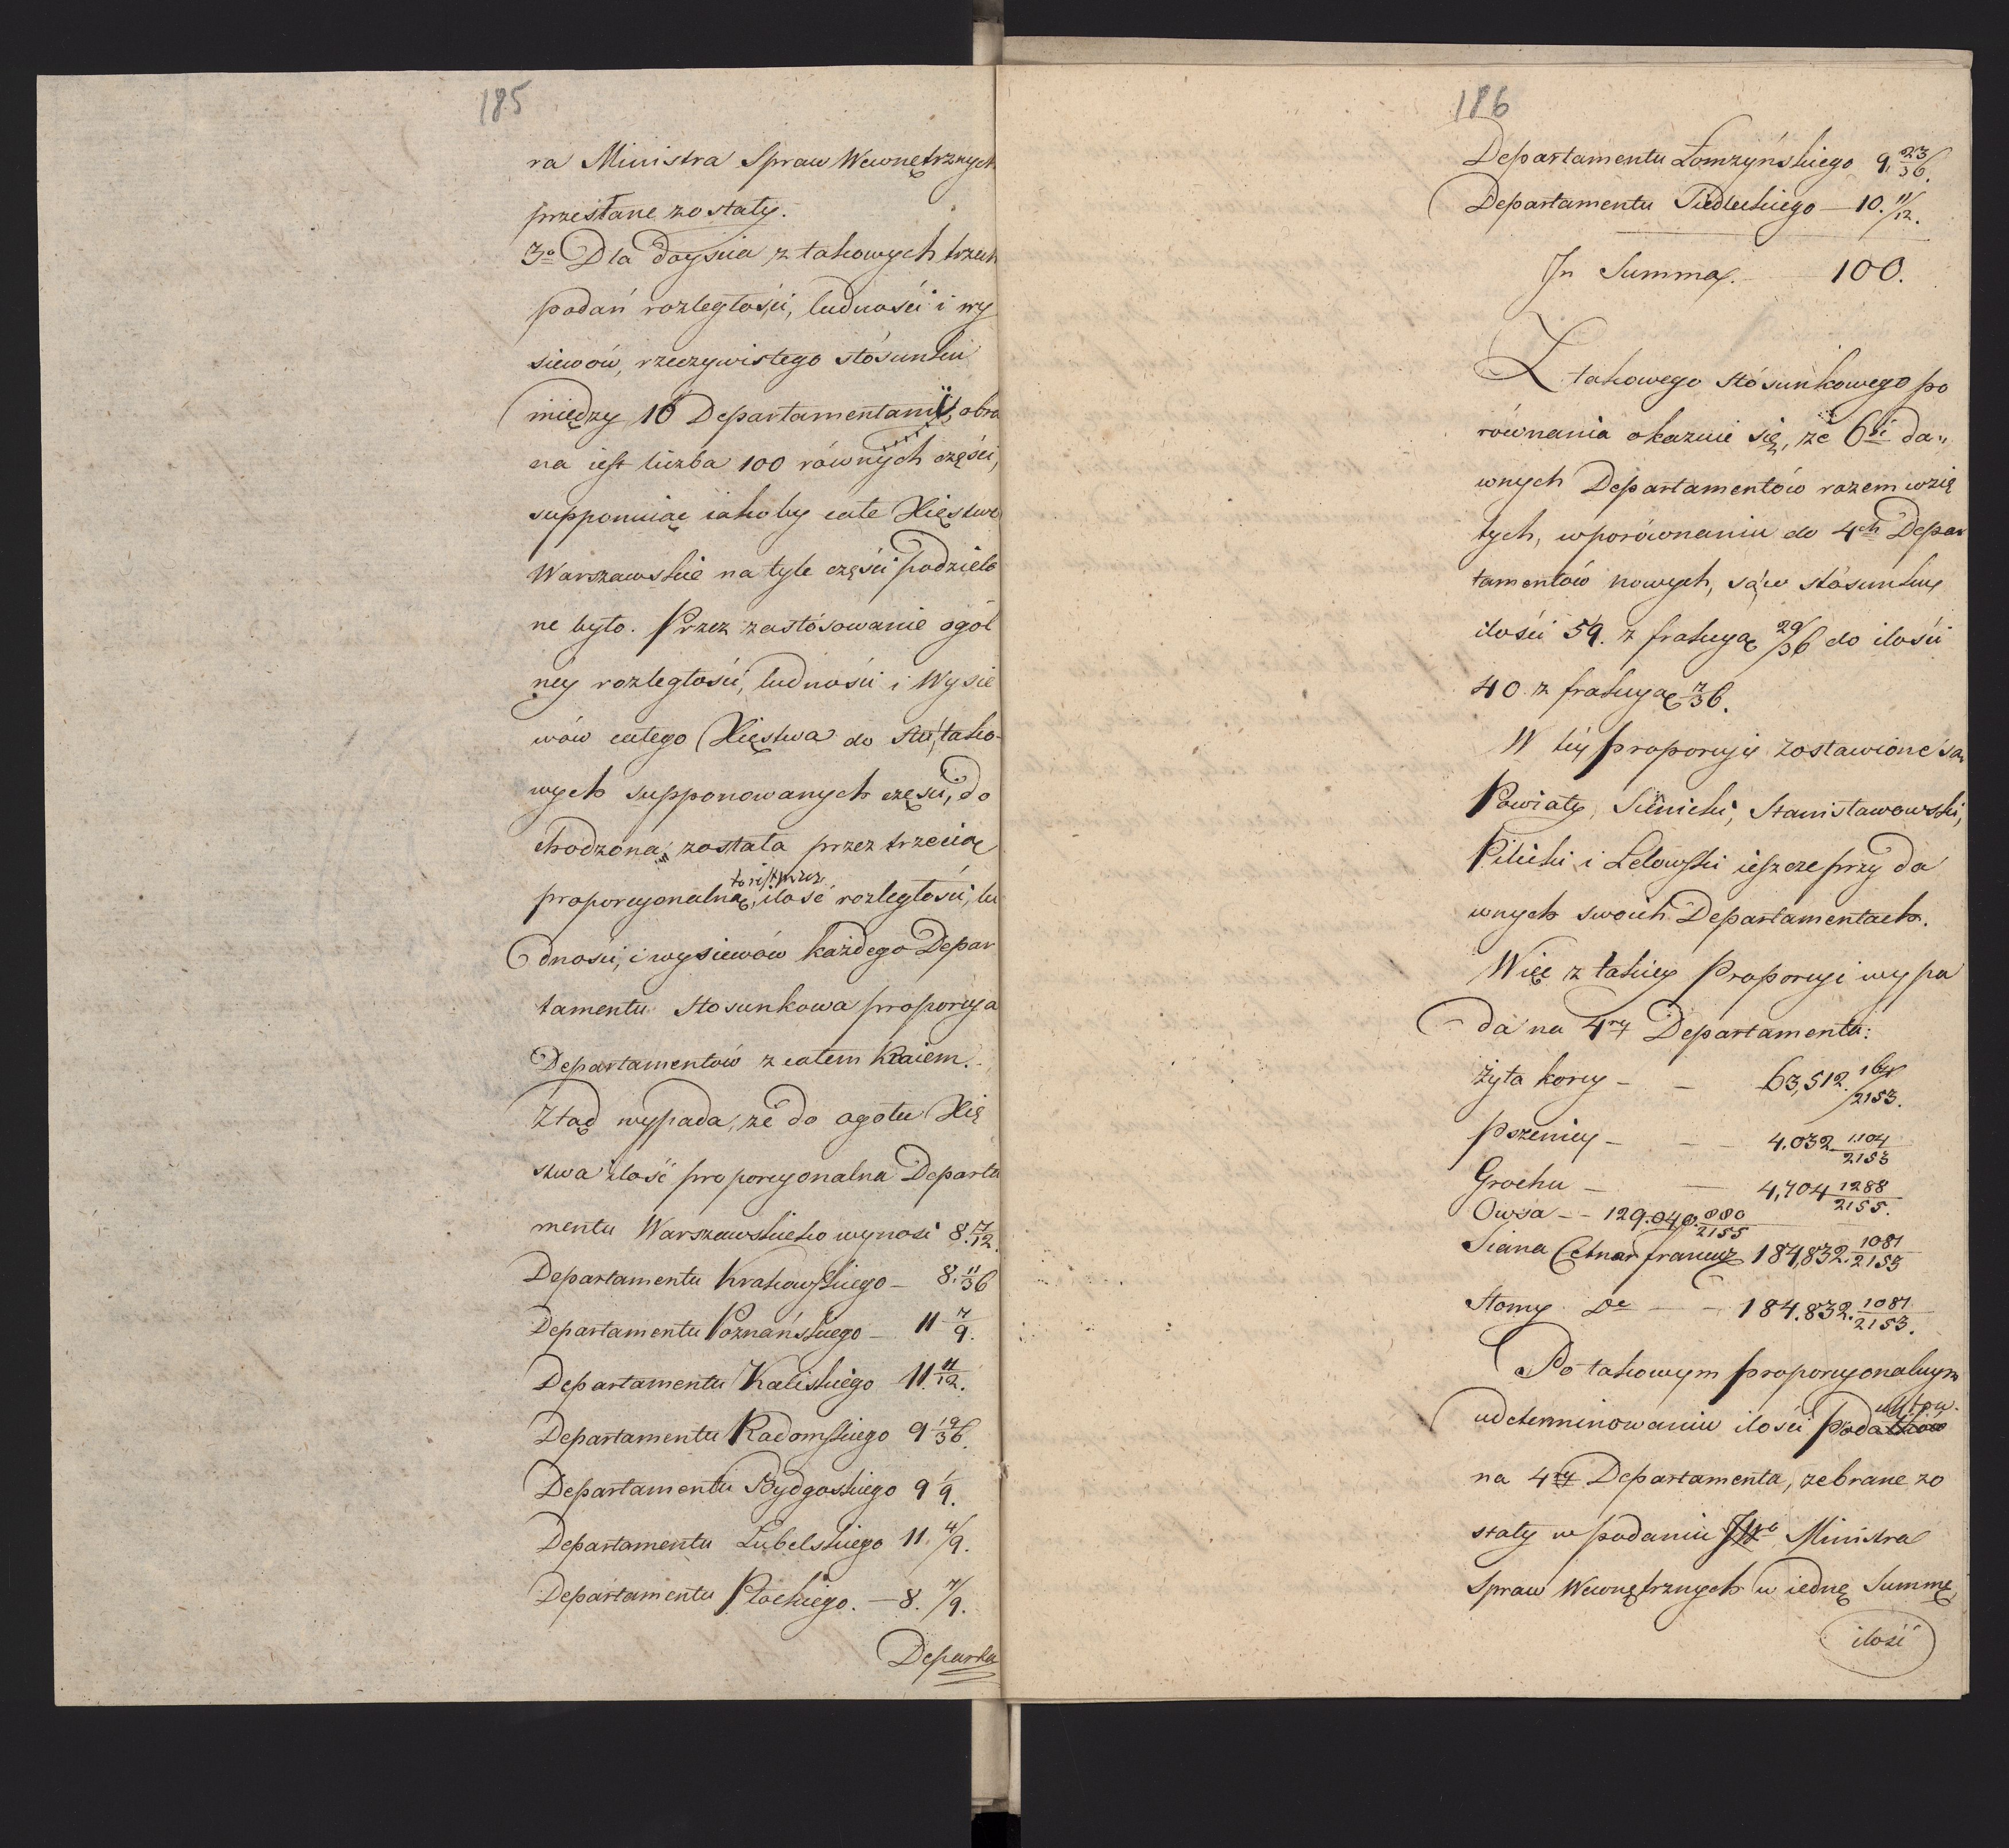 185
ra Ministra Spraw Wewnętrznych
przesłane zostały.
3o Dla doyscia z takowych trzech
podań rozległości, ludności i wy
siewów, rzeczywistego stósunku
między 10 Departamentami, obra
na iest liczba 100 równych części,
supponuiąc iakoby całe Xięstwo
Warszawskie na tyle części podzielo
ne było. Przez zastósowanie ogól
ney rozległości, ludności i Wysie
wów całego Xięstwa do stu tako-
wych supponowanych części, do
chodzona została przez trzecią
to iest przez
proporcyonalną, ilość rozległości, lu
dności, i wysiewów każdego Depar
tamentu Stosunkowa proporcya
Departamentów z całem Kraiem.
Ztąd wypada, że do ogołu Xię
stwa ilość proporcyonalna Departa
mentu Warszawskiego wynosi 8. 7/12.
Departamentu Krakowskiego - 8. 11/36
Departamentu Poznańskiego - 11 7/9.
Departamentu Kaliskiego - 11. 11/12.
Departamentu Radomskiego 9 19/36.
Departamentu Bydgoskiego 9 1/9.
Departamentu Lubelskiego 11. 4/9.
Departamentu Płockiego. - 8. 7/9.
Departa
186
Departamentu Łomżyńskiego 9. 23/36.
Departamentu Siedleckiego - 10. 11/12.
In Summa. 100.
Z takowego stósunkowego po
równania okazuie się, że 6ci da„
wnych Departamentów razem wzię
tych, w porównaniu do 4ch Depar
tamentów nowych, są w stósunku
ilości 59. z frakcyą 29/36 do ilości
40 z frakcyą 7/36.
W tey proporcyi zostawione są
Powiaty, Siennicki, Stanisławowski,
Pilicki i Lelowski ieszcze przy da
wnych swoich Departamentach.
Więc z takiey Proporcyi wypa
da na 4ry Departamenta:
żyta korcy - - 63,512. 164/2153.
Pszenicy - - - 4.032 1104/2153
Grochu - - 4,704 1288/2155.
Owsa - - 129.040. 880/2155
Siana Cetnar francuz 184,832. 1081/2153
Słomy do - - 184.832. 1081/2153.
Po takowym proporcyonalnym
udeterminowaniu ilości Podatków
na 4ry Departamenta, zebrane zo
stały w podaniu JWo Ministra
Spraw Wewnętrznych w iednę Summę,
ilość